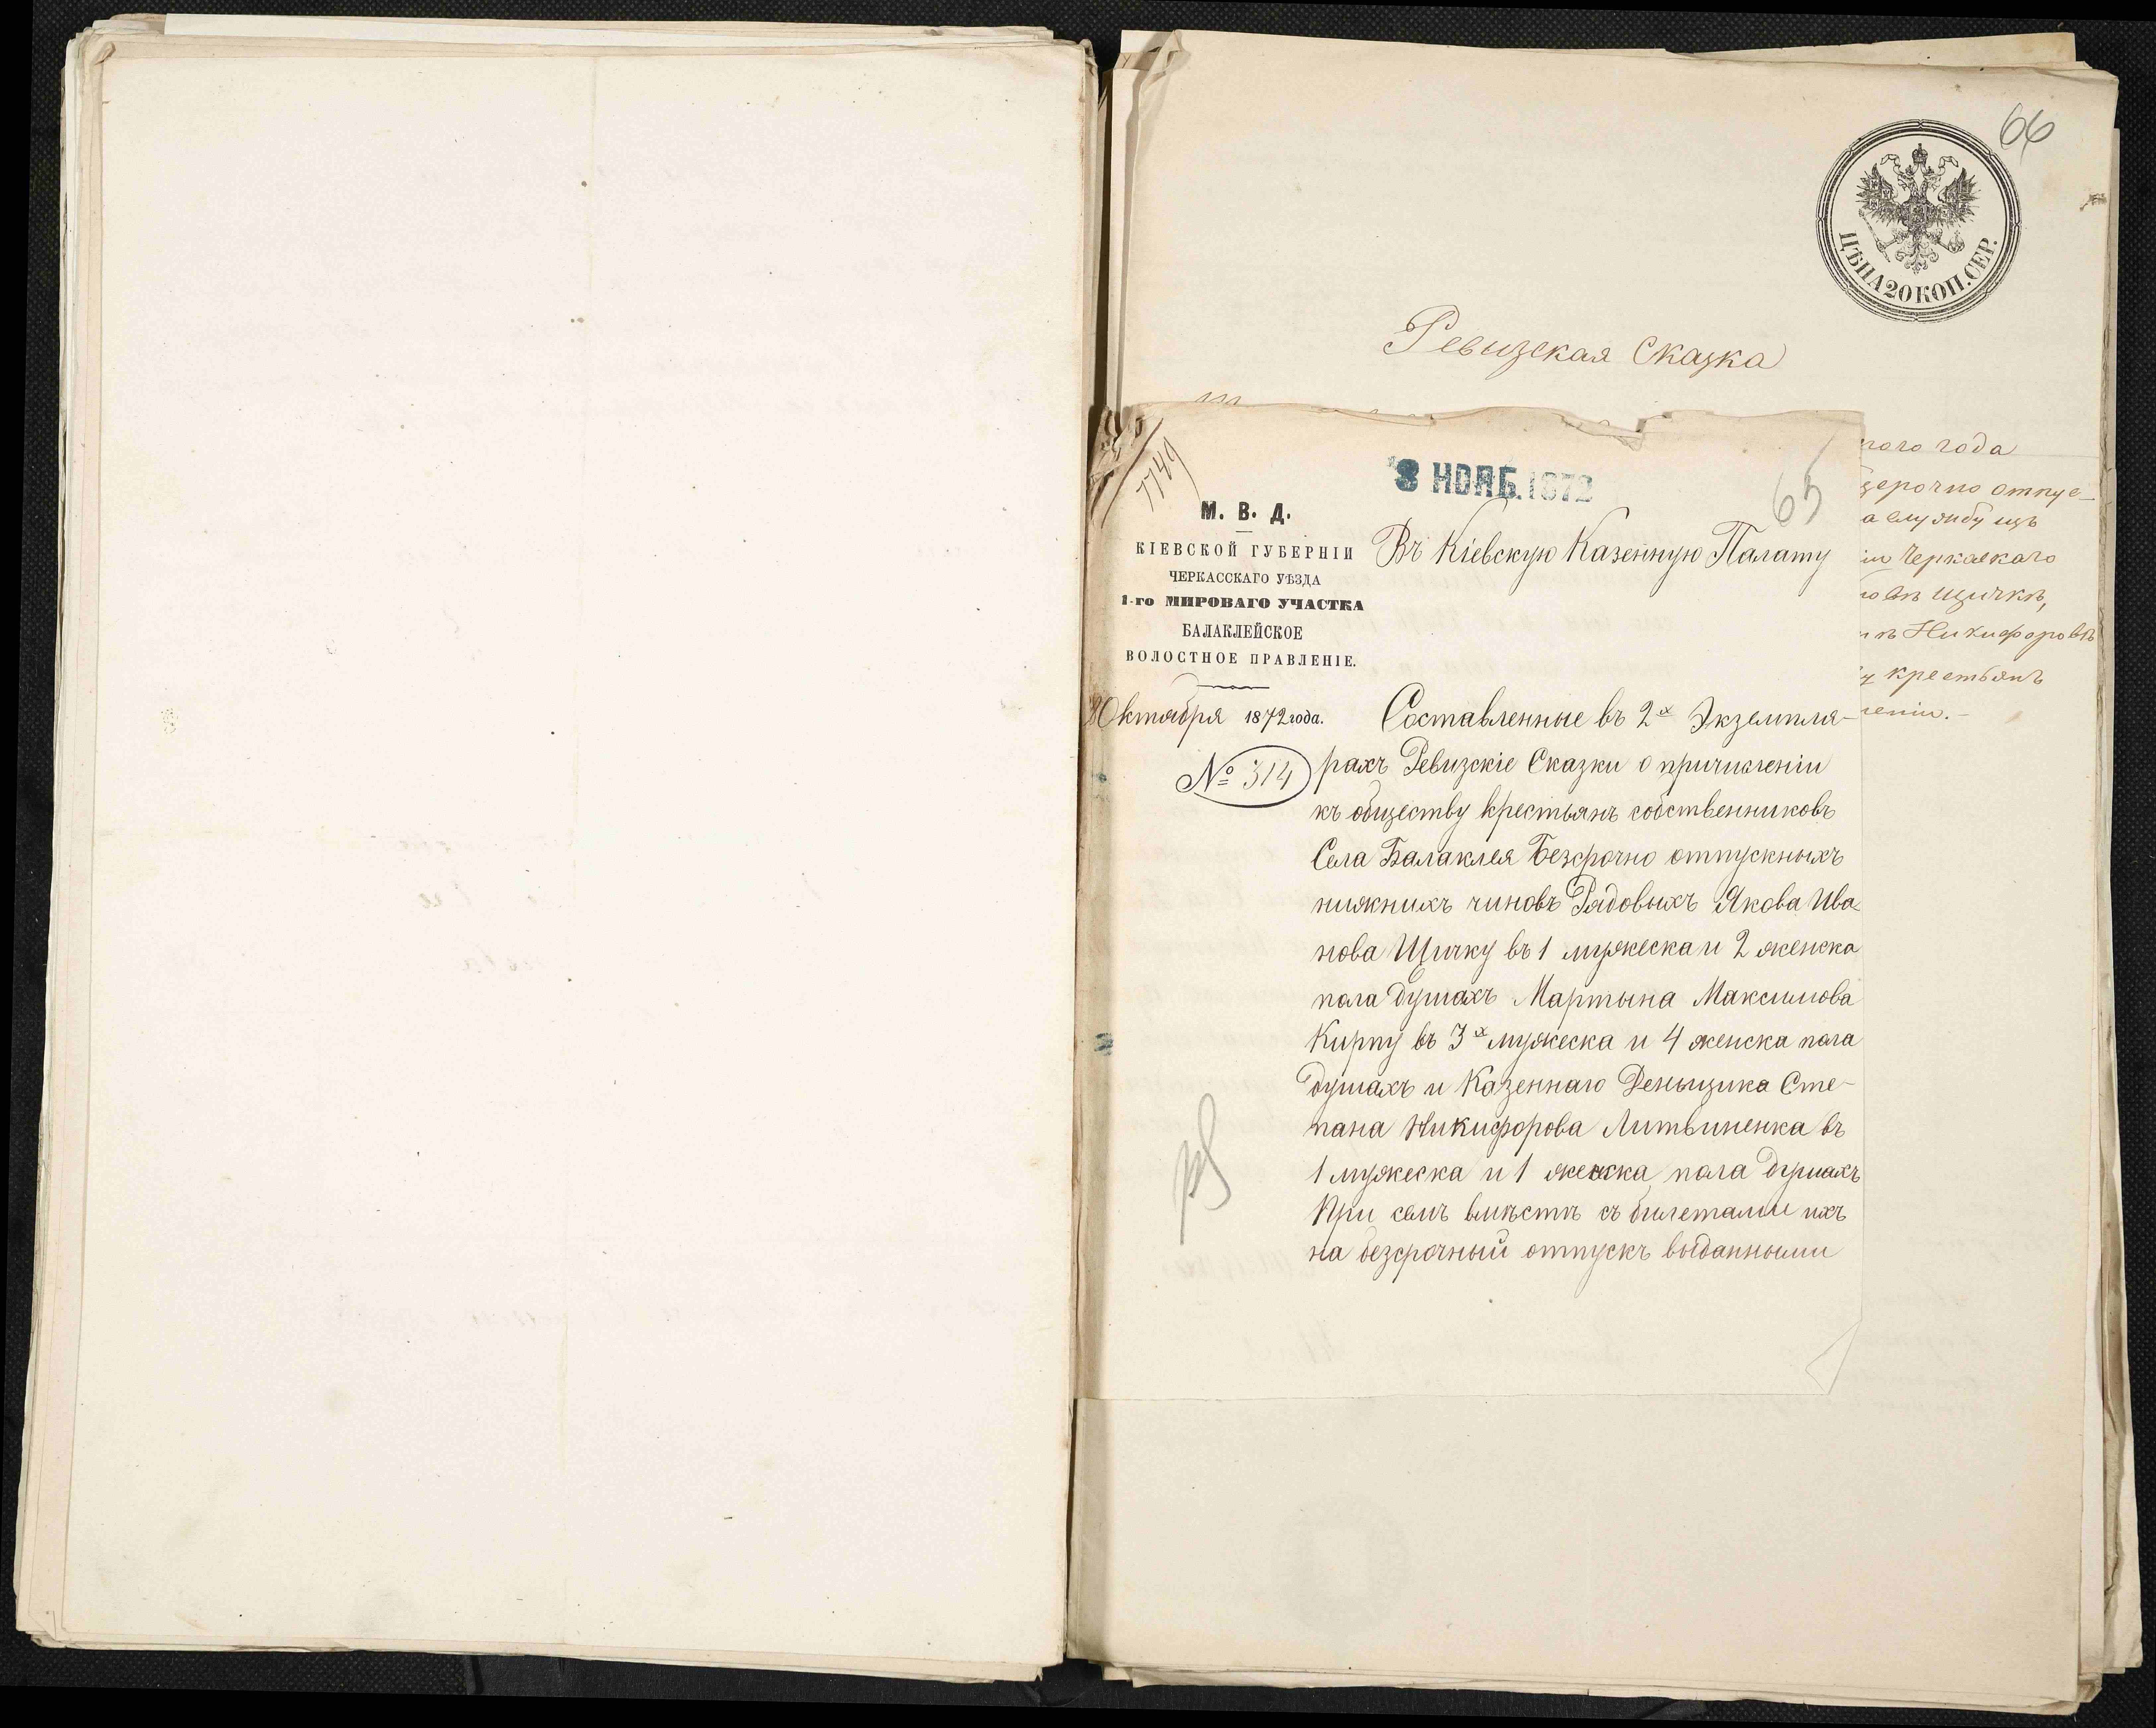 66
ЦѢНА 20 КОП. СЕР.
Ревизская Сказка
ного года
зерочно отпус-
а службу изъ
Черкаскаго
Щичкѣ,
Никифоровѣ
крестьянъ
ленiи.-
7749
8 НОЯБ. 1872
65
М. В. Д.
КІЕВСКОЙ ГУБЕРНІИ
ЧЕРКАССКАГО УѢЗДА
1-го МИРОВАГО УЧАСТКА
БАЛАКЛЕЙСКОЕ
ВОЛОСТНОЕ ПРАВЛЕНІЕ.
Октября 1872 года.
№ 314
Въ Кіевскую Казенную Палату
Составленные въ 2х Экземпля-
рахъ Ревизскіе Сказки о причисленіи
къ обществу крестьянъ собственниковъ
Села Балаклея Безсрочно отпускныхъ
нижнихъ чиновъ Рядовыхъ Якова Ива-
нова Щичку въ 1 мужеска и 2 женска
пола душахъ Мартына Максимова
Кирпу въ 3х мужеска и 4 женска пола
душахъ и Казеннаго Деньщика Сте-
пана Никифорова Литвиненка въ
1 мужеска и 1 женска пола душахъ
При семъ вмѣстѣ съ билетами ихъ
на безсрочный отпускъ выданными